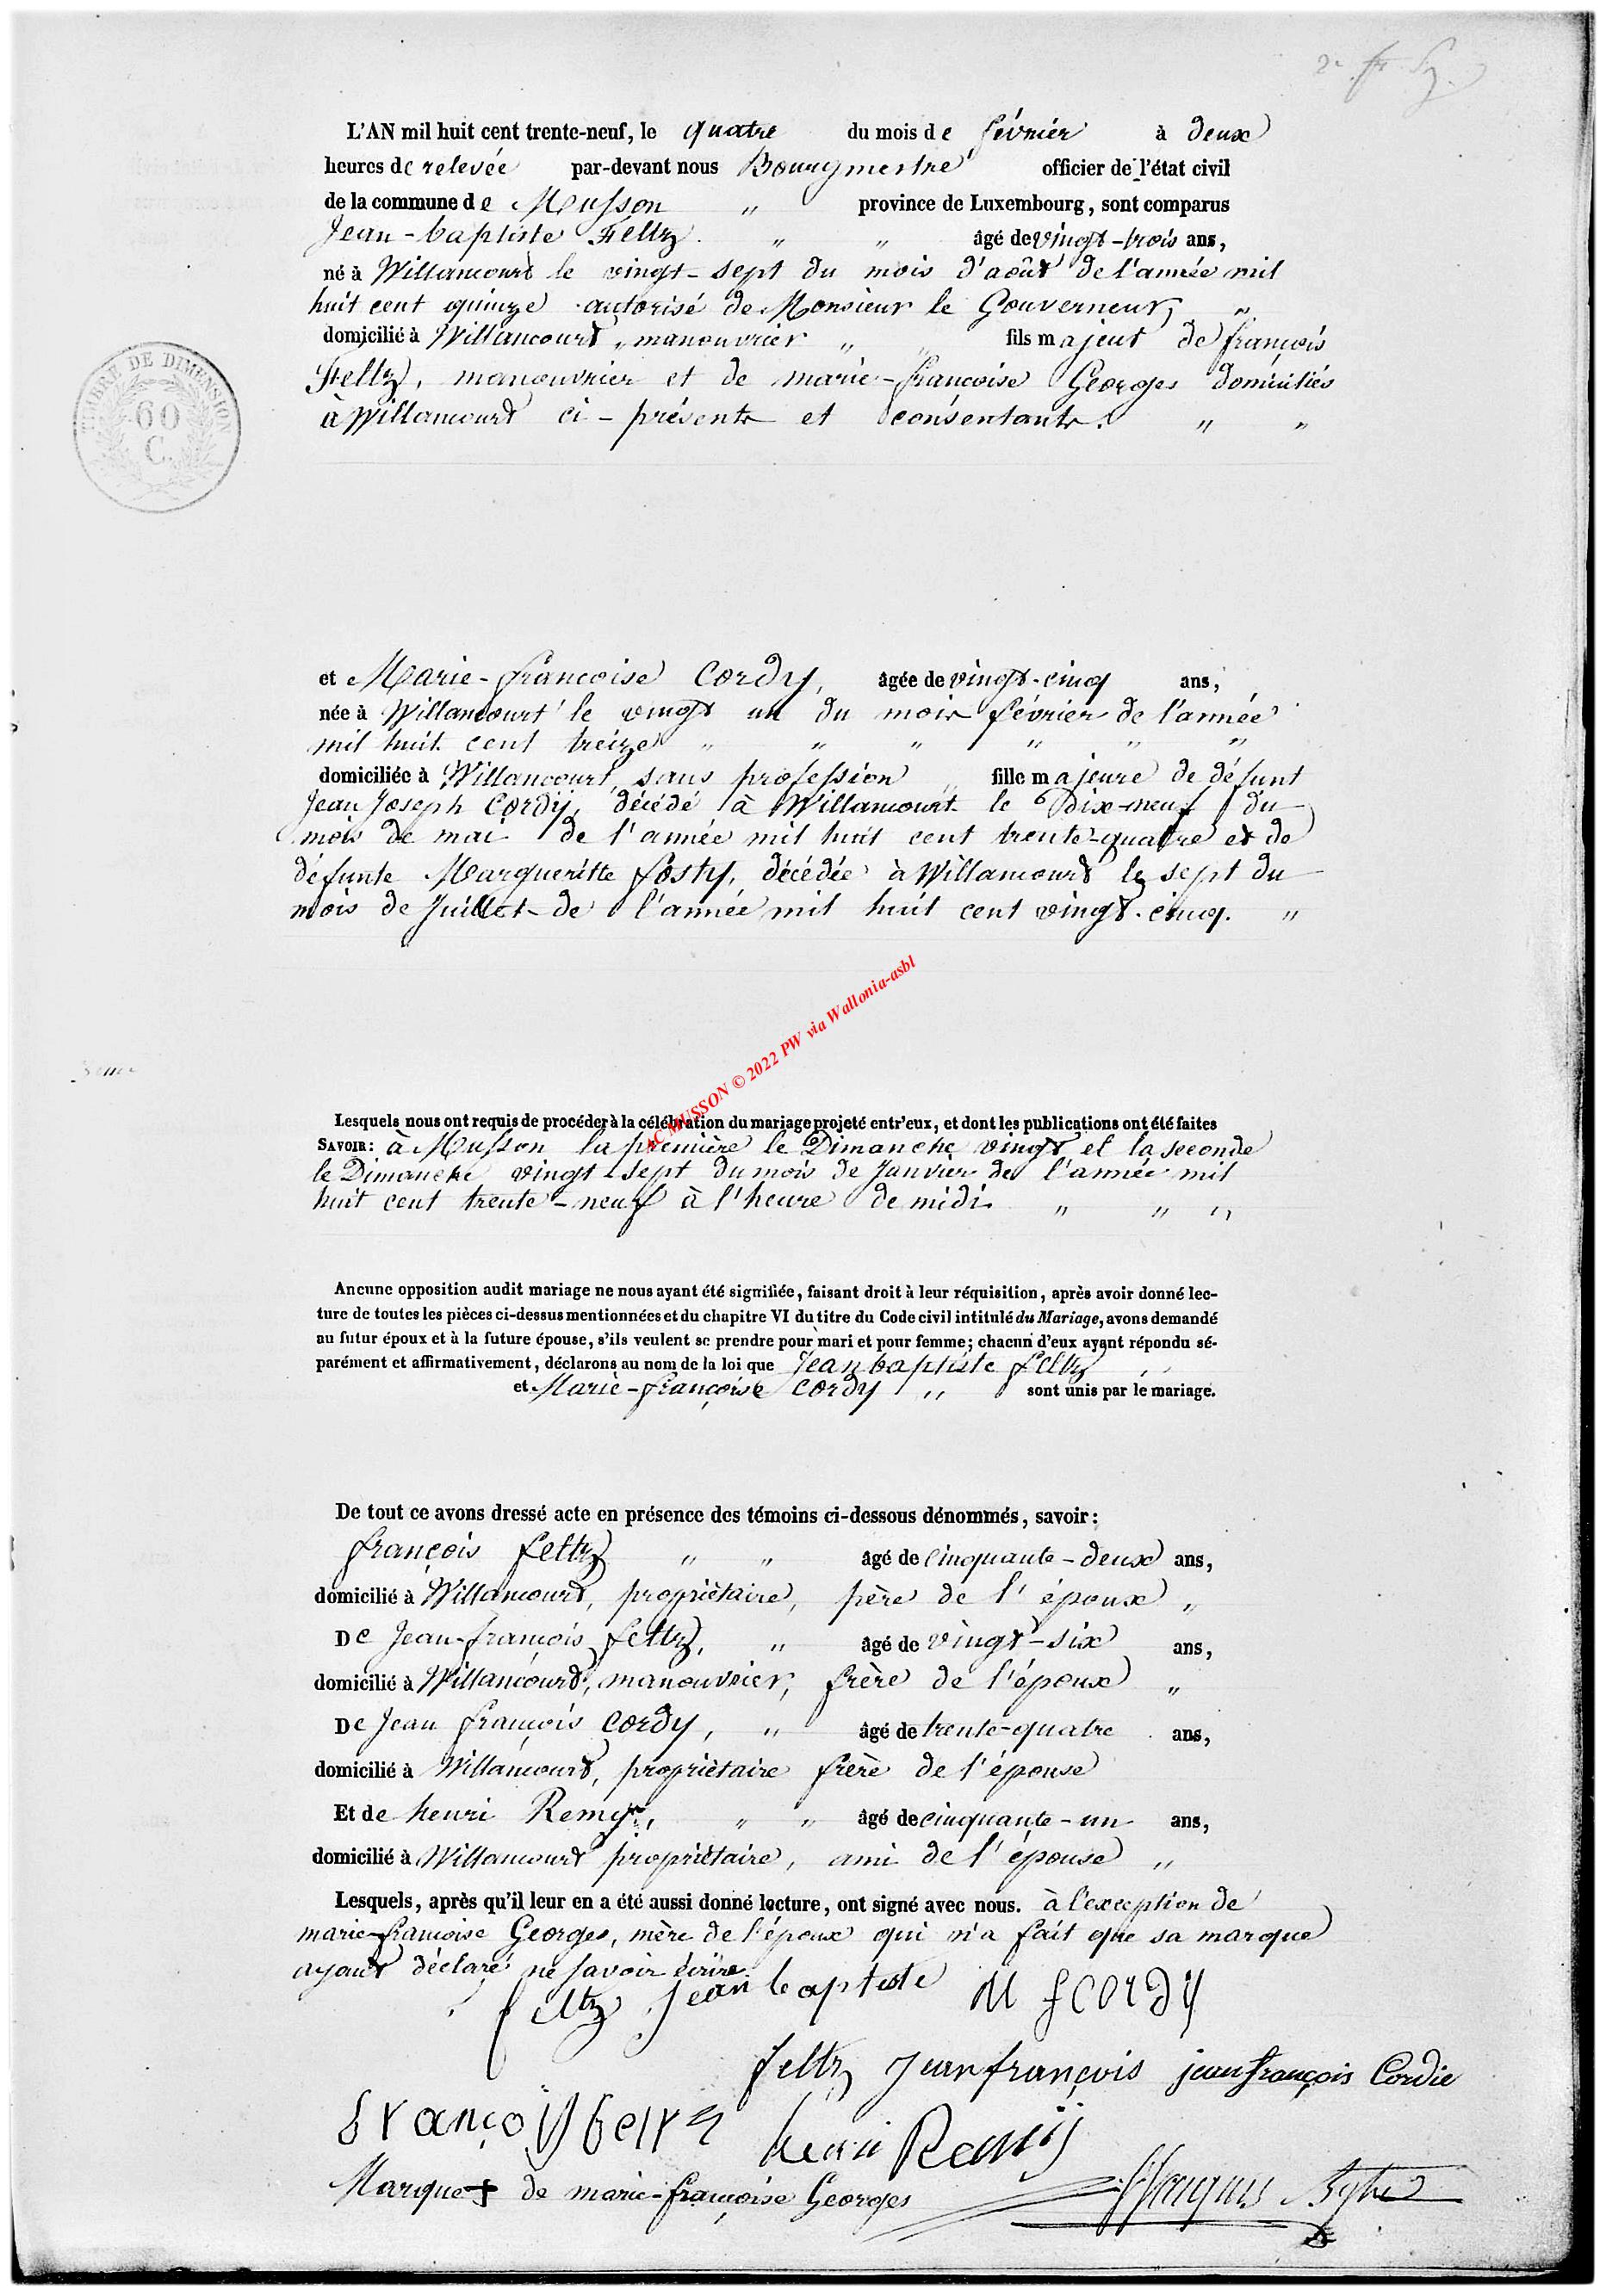 L'AN mil huit cent trente-neuf, le quatre du mois de février à deux
heures de relevée par-devant nous Bourgmestre officier de l'état civil
de la commune de Musson " province de Luxembourg, sont comparus
Jean-baptiste Feltz. " " âgé de vingt-trois ans,
né à Willancourt le vingt-sept du mois d'août de l'année mil
huit cent quinze autorisé de Monsieur le Gouverneur, "
domicilié à Willancourt, manouvrier " " fils majeur de françois
Feltz, manouvrier et de marie-francoise Georges domiciliés
à Willancourt ci-présents et consentants. " "
TIMBRE DE DIMENSION
60
C.
et Marie-francoise Cordy, âgée de vingt-cinq ans,
née à Willancourt le vingt un du mois février de l'année
mil huit cent treize " " " " " "
domiciliée à Willancourt, sans profession " fille majeure de défunt
Jean Joseph Cordy, décédé à Willancourt le dix-neuf du
mois de mai de l'année mil huit cent trente-quatre et de
défunte Margueritte fosty, décédée à Willancourt le sept du
mois de Juillet de l'année mil huit cent vingt-cinq. "
AC MUSSON © 2022 PW via Wallonia-asbl
Lesquels nous ont requis de procéder à la célébration du mariage projeté entr'eux, et dont les publications ont été faites
SAVOIR: à Musson la première le Dimanche vingt et la seconde
le Dimanche vingt-sept du mois de Janvier de l'année mil
huit cent trente-neuf à l'heure de midi. " " "
Aucune opposition audit mariage ne nous ayant été signifiée, faisant droit à leur réquisition, après avoir donné lec-
ture de toutes les pièces ci-dessus mentionnées et du chapitre VI du titre du Code civil intitulé du Mariage, avons demandé
au futur époux et à la future épouse, s'ils veulent se prendre pour mari et pour femme; chacun d'eux ayant répondu sé-
parément et affirmativement, déclarons au nom de la loi que Jean baptiste feltz "
et Marie-françoise Cordy " sont unis par le mariage.
De tout ce avons dressé acte en présence des témoins ci-dessous dénommés, savoir:
françois feltz " " âgé de cinquante-deux ans,
domicilié à Willancourt, propriètaire, père de l'époux "
De Jean-françois feltz, " âgé de vingt-six ans,
domicilié à Willancourt, manouvrier, frère de l'époux "
De Jean françois Cordy, " âgé de trente-quatre ans,
domicilié à Willancourt, propriètaire frère de l'épouse
Et de henri Remy, " " âgé de cinquante-un ans,
domicilié à Willancourt propriétaire, ami de l'épouse "
Lesquels, après qu'il leur en a été aussi donné lecture, ont signé avec nous. à l'exception de
marie-francoise Georges, mère de l'époux qui n'a fait que sa marque
ayant déclaré ne savoir écrire.
feltz Jean baptiste M f cordy
feltz jean françois jean françois Cordie
françois feltz henri Remij
Marque + de marie-françoise Georges